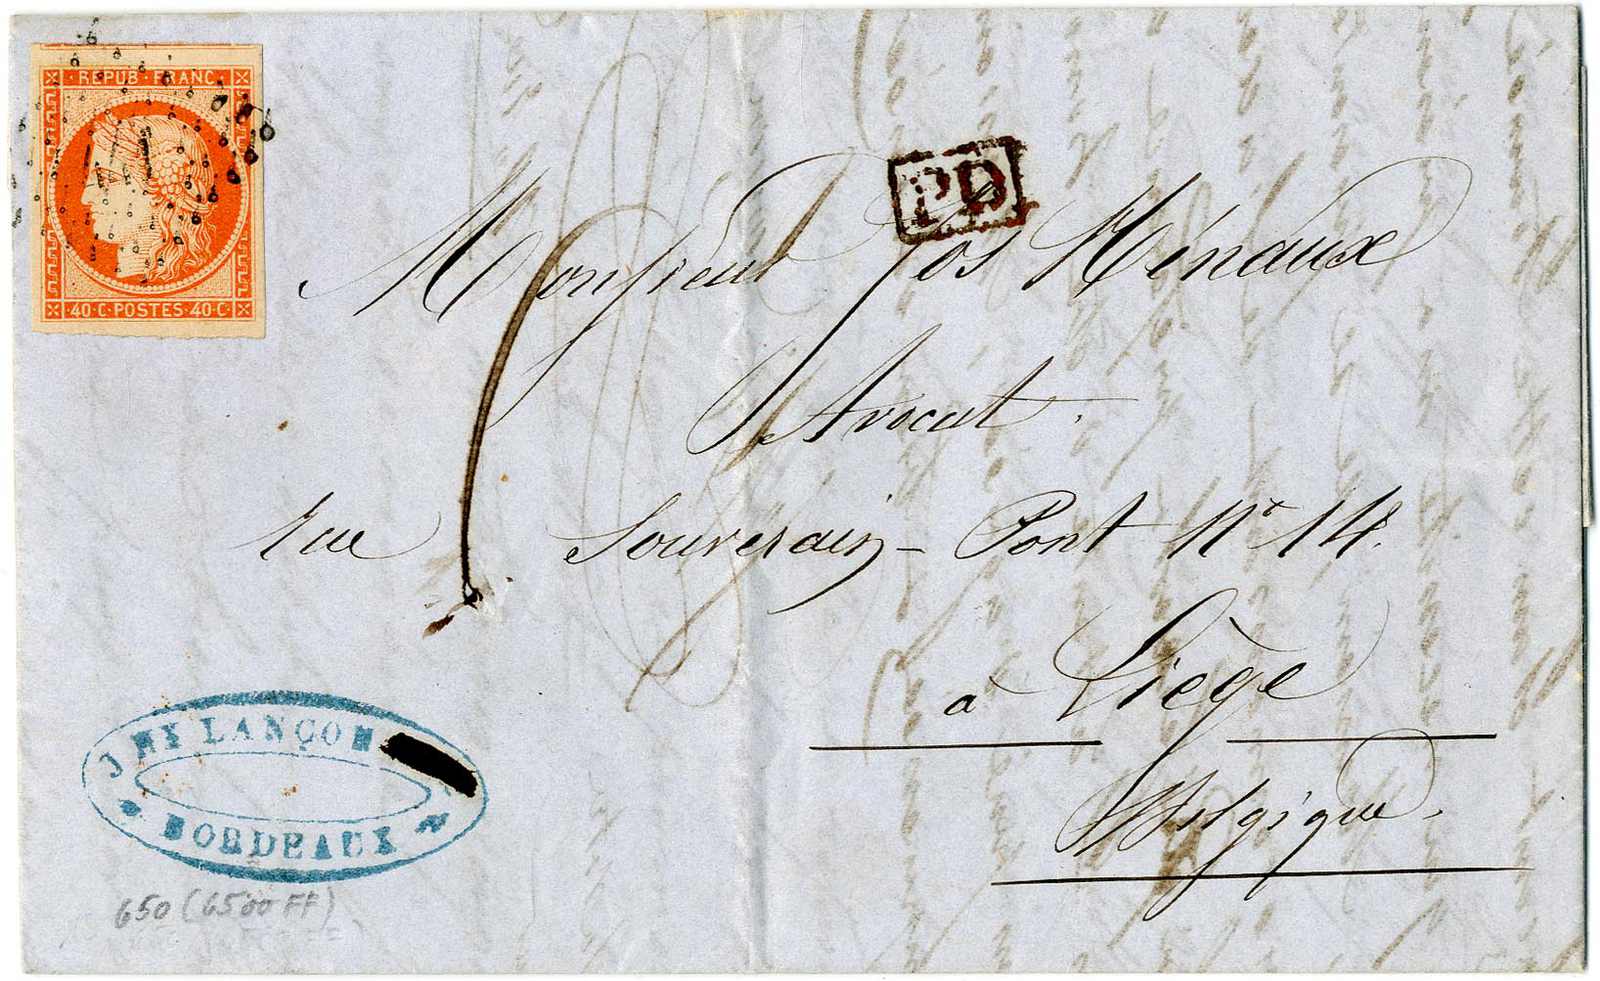 REPUB·FRANC
40·C·POSTES·40·C
PD
Monsieur Jos Hénaux
Avocat.
rue Souverain-Pont Nr 14.
à Liège
Belgique.
LANÇON
BORDEAUX
650 (6500 FF)